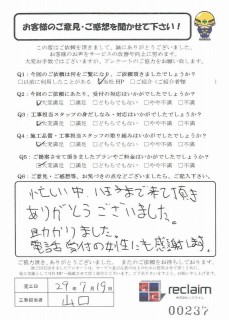 お客様のご意見・ご感想を聞かせて下さい!
この度はご依頼を頂きまして、誠にありがとうございました。
お客様のお声をサービスの改善や向上に努めます。
大変お手数ではございますが、アンケートのご協力をお願い致します。
Q1:今回のご依頼は何をご覧になり、ご依頼頂きましたでしょうか?
Q2:今回のご依頼にあたり、受付の対応はいかがでしたでしょうか?
大変満足 満足 どちらでもない やや不満 不満
Q3:工事担当スタッフの身だしなみ・対応はいかがでしたでしょうか?
大変満足 満足 どちらでもない やや不満 不満
Q4:施工品質・工事担当スタッフの取り組みはいかがでしたでしょうか?
大変満足 満足 どちらでもない やや不満 不満
Q5:ご提案させて頂きましたプランやご料金はいかがでしたでしょうか?
大変満足 満足 どちらでもない やや不満 不満
Q6:ご意見、ご感想等、お気づきの点などございましたら、ご記入下さい。
忙しい中、いままで来て頂き
ありがとうございました。
助かりました。
電話受付の女性にも感謝します。
ご協力頂き、ありがとうございました。またのご依頼をお待ちしております。
施工日 29年7月19日
工事担当者 山口
reclaim
株式会社リクレイム
00237